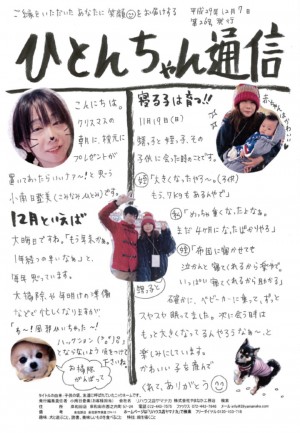 ご縁をいただいた あなたに 笑顔 をお届けする
平成29年12月7日
第26号 発行
ひとみちゃん通信
こんにちは。
クリスマスの
朝に、枕元に
プレゼントが
置いてあったらいいな〜。と思う
12月といえば
大晦日ですね。「もう年末かぁ。
1年経つの早いなぁ」と
毎年 思っています。
大掃除や年明けの準備
などで忙しくなりますが
ハックション
とならないよう 気をつけて
大掃除
がんばって
寝る子は育つ!!
11月19日(日)
甥っ子と姪っ子、その
子供に会った時のことです。
「大きくなったやろ〜。
もう、7キロもあるんやで」
「めっちゃ重くなったよなぁ。
まだ4か月になったばかりやろ」
「布団に寝かせても
泣かんと 寝てくれるから 楽やで。
いっぱい寝てくれるから助かる」
確かに、ベビーカーに乗って、ずっと
スヤスヤ眠ってました。次に会う時は
もっと大きくなってるんやろうなぁ〜。と
楽しみにしています。
かわいい子を産んで
くれて、ありがとう
甥っ子